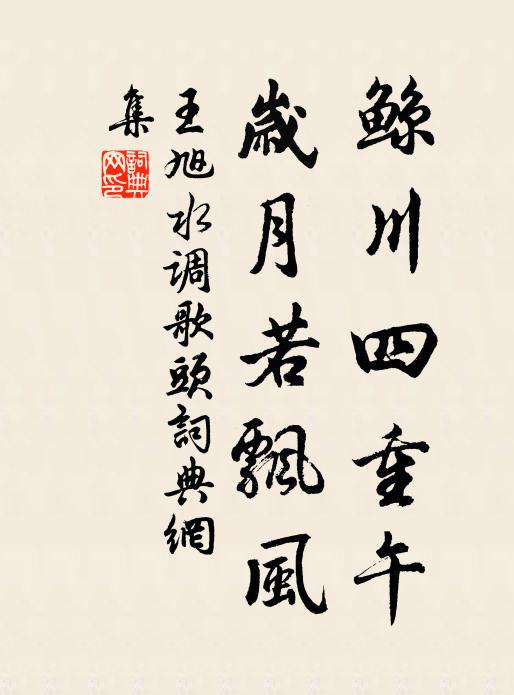 鲸川四重午
歲月若飄風
王旭水调歌頭詞典網
集
詞典
网印